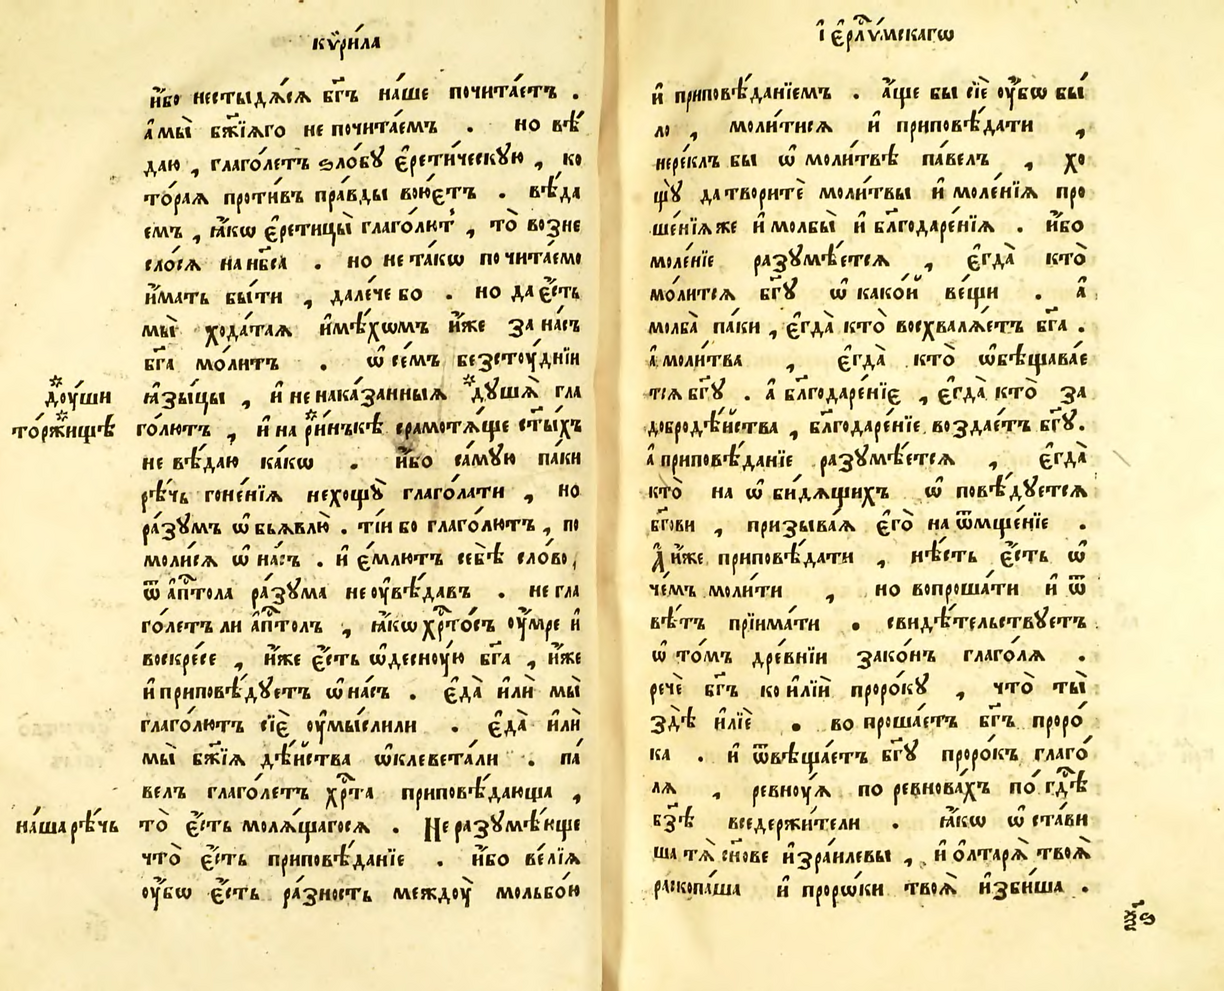 кѷри́ла
и҆́бо нестыдѧ́сѧ бг҃ъ на́ше почита́етъ .
а҆ мы̀ бж҃їѧго не почита́емъ . но вѣ́
даю , глаго́летъ ѕло́бꙋ є҆рети́ческꙋю , ко
то́раѧ проти́въ пра́вды вою́етъ . вѣ́да
емъ , ꙗ҆́кѡ є҆рети́цы глаго́лют , то̀ возне
сло́сѧ на нб҃са̀ . но не та́кѡ почита́емо
и҆́мать бы́ти , дале́че бо . но да є҆́сть
мы̀ хода́таѧ и҆мѣ́хѡмъ и҆́же за на́съ
бг҃а мо́лит . ѡ҆ се́мъ безстоу́днїи
доу́ши
ꙗ҆зы́цы , и҆ не нака́занныѧ дꙋшѧ̀ гла
то́ржищѣ
го́лютъ , и҆ на ри́нъкѣ срамотѧ́ще ст҃ы́хъ
не вѣ́даю ка́кѡ . и҆́бо са́мꙋю па́ки
рѣ́чь гоне́нїѧ нехощꙋ̀ глаго́лати , но
ра́зꙋмъ ѡ҆бьѧвлю̀ . ті́и бо глаго́лютъ , по
моли́сѧ ѡ҆ на́съ . и҆ є҆́млютъ себѣ̀ сло́во ,
ѿ а҆пⷭ҇тола ра́зꙋма не оу҆вѣ́давъ . не гла
го́летъ ли а҆пⷭ҇толъ , ꙗ҆́кѡ хрⷭ҇то́съ оу҆́мре и҆
воскре́се , и҆́же є҆́сть ѡ҆десноу́ю бг҃а , и҆́же
и҆ приповѣ́дꙋетъ ѡ҆ на́съ . є҆да̀ и҆лѝ мы̀
глаго́лютъ сїѐ оу҆мы́слили . є҆да̀ и҆лѝ
мы̀ бж҃їѧ дѣ́йства ѡ҆клевета́ли . па́
велъ глаго́летъ хрⷭ҇та̀ приповѣ́дающа ,
на́ша рѣ́чь
то̀ є҆́сть молѧ́щагосѧ . Не разꙋмѣ́юще
что̀ є҆́сть приповѣ́данїе . и҆́бо ве́лїѧ
оу҆́бѡ є҆́сть ра́зность междоу̀ мольбо́ю
і҆ єрⷭ҇лꙋ́мскагѡ
и҆ приповѣ́данїемъ . а҆́ще бы сїѐ оу҆́бѡ бы́
ло , моли́тисѧ и҆ приповѣ́дати ,
нере́клъ бы ѡ҆ моли́твѣ па́велъ , хо
щꙋ̀ да творитѐ моли́твы и҆ моле́нїѧ про
ше́нїѧже и҆ молбы̀ и҆ блг҃одаре́нїѧ . и҆́бо
моле́нїе разꙋмѣ́етсѧ , є҆гда̀ кто̀
мо́литсѧ бг҃ꙋ ѡ҆ како́й ве́щи . а҆
молба̀ па́ки , є҆гда̀ кто̀ восхвалѧ́етъ бг҃а .
а҆ моли́тва , є҆гда̀ кто̀ ѡ҆бѣщавае
тсѧ бг҃ꙋ . а҆ блг҃одаре́нїє , є҆гда̀ кто̀ за
добродѣ́йства , блг҃одаре́нїе воздае́тъ бг҃ꙋ.
а҆ приповѣ́данїе разꙋмѣ́етсѧ , є҆гда̀
кто̀ на ѡ҆би́дѧщихъ ѡ҆повѣ́дꙋетсѧ
бг҃ови , призыва́ѧ є҆го̀ на ѿмще́нїе .
А҆ и҆́же приповѣ́дати , нѣ́сть є҆́сть ѡ҆
че́мъ моли́ти , но вопроша́ти и҆ ѿ
вѣ́тъ прїима́ти . свидѣ́тельствꙋетъ
ѡ҆ то́мъ дре́внїи зако́нъ глаго́лѧ .
речѐ бг҃ъ ко и҆лїй проро́кꙋ , что̀ ты̀
здѣ̀ и҆лїѐ . вопроша́етъ бг҃ъ проро́
ка . и҆ ѿвѣща́етъ бг҃ꙋ проро́къ глаго́
лѧ , ревноу́ѧ поревнова́хъ по гдⷭ҇ѣ
бз҃ѣ вседержи́тели . ꙗ҆́кѡ ѡ҆ста́ви
ша тѧ̀ сн҃ове и҆зра́илевы , и҆ о҆лтарѧ̀ твоѧ̀
раскопа́ша и҆ проро́ки твоѧ̀ и҆зби́ша .